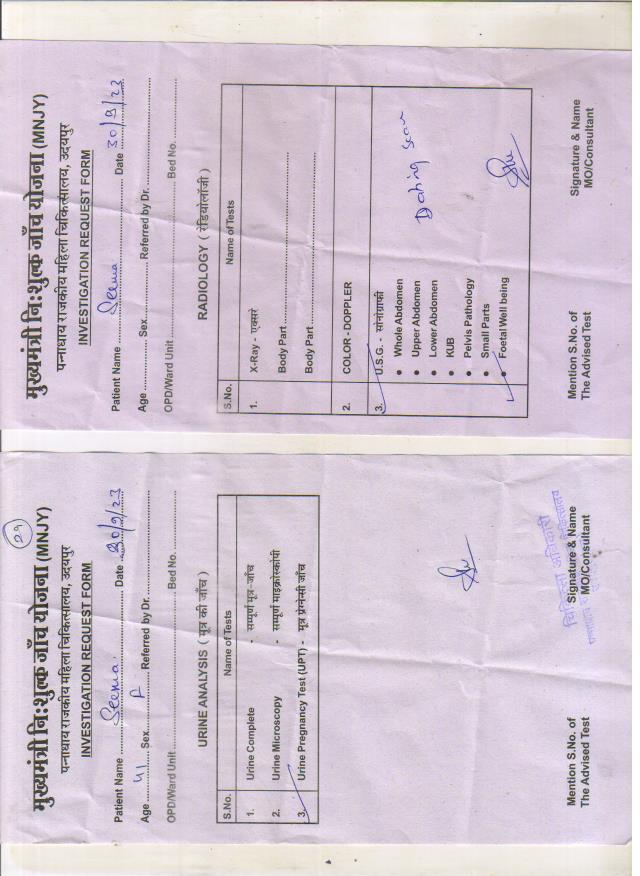 मुख्यमंत्री निःशुल्क जाँच योजना (MNJY)
पन्नाधाय राजकीय महिला चिकित्सालय, उदयपुर
INVESTIGATION REQUEST FORM
Patient Name Seema Date 30/9/23
Age Sex Referred by Dr.
OPD/Ward Unit Bed No.
RADIOLOGY ( रेडियोलॉजी )
S.No. Name of Tests
1. X-Ray - एक्सरे
Body Part
Body Part
2. COLOR - DOPPLER
3. U.S.G. - सोनोग्राफी
• Whole Abdomen
• Upper Abdomen
• Lower Abdomen
• KUB
• Pelvis Pathology
• Small Parts
• Foetal Well being
Dating scan
Mention S.No. of
The Advised Test
Signature & Name
MO/Consultant
29
मुख्यमंत्री निःशुल्क जाँच योजना (MNJY)
पन्नाधाय राजकीय महिला चिकित्सालय, उदयपुर
INVESTIGATION REQUEST FORM
Patient Name Seema Date 30/9/23
Age 41 Sex F Referred by Dr.
OPD/Ward Unit Bed No.
URINE ANALYSIS ( मूत्र की जाँच )
S.No. Name of Tests
1. Urine Complete - सम्पूर्ण मूत्र-जाँच
2. Urine Microscopy - सम्पूर्ण माइक्रोस्कोपी
3. Urine Pregnancy Test (UPT) - मूत्र प्रेग्नेन्सी जाँच
चिकित्सा अधिकारी
Mention S.No. of
The Advised Test
Signature & Name
MO/Consultant